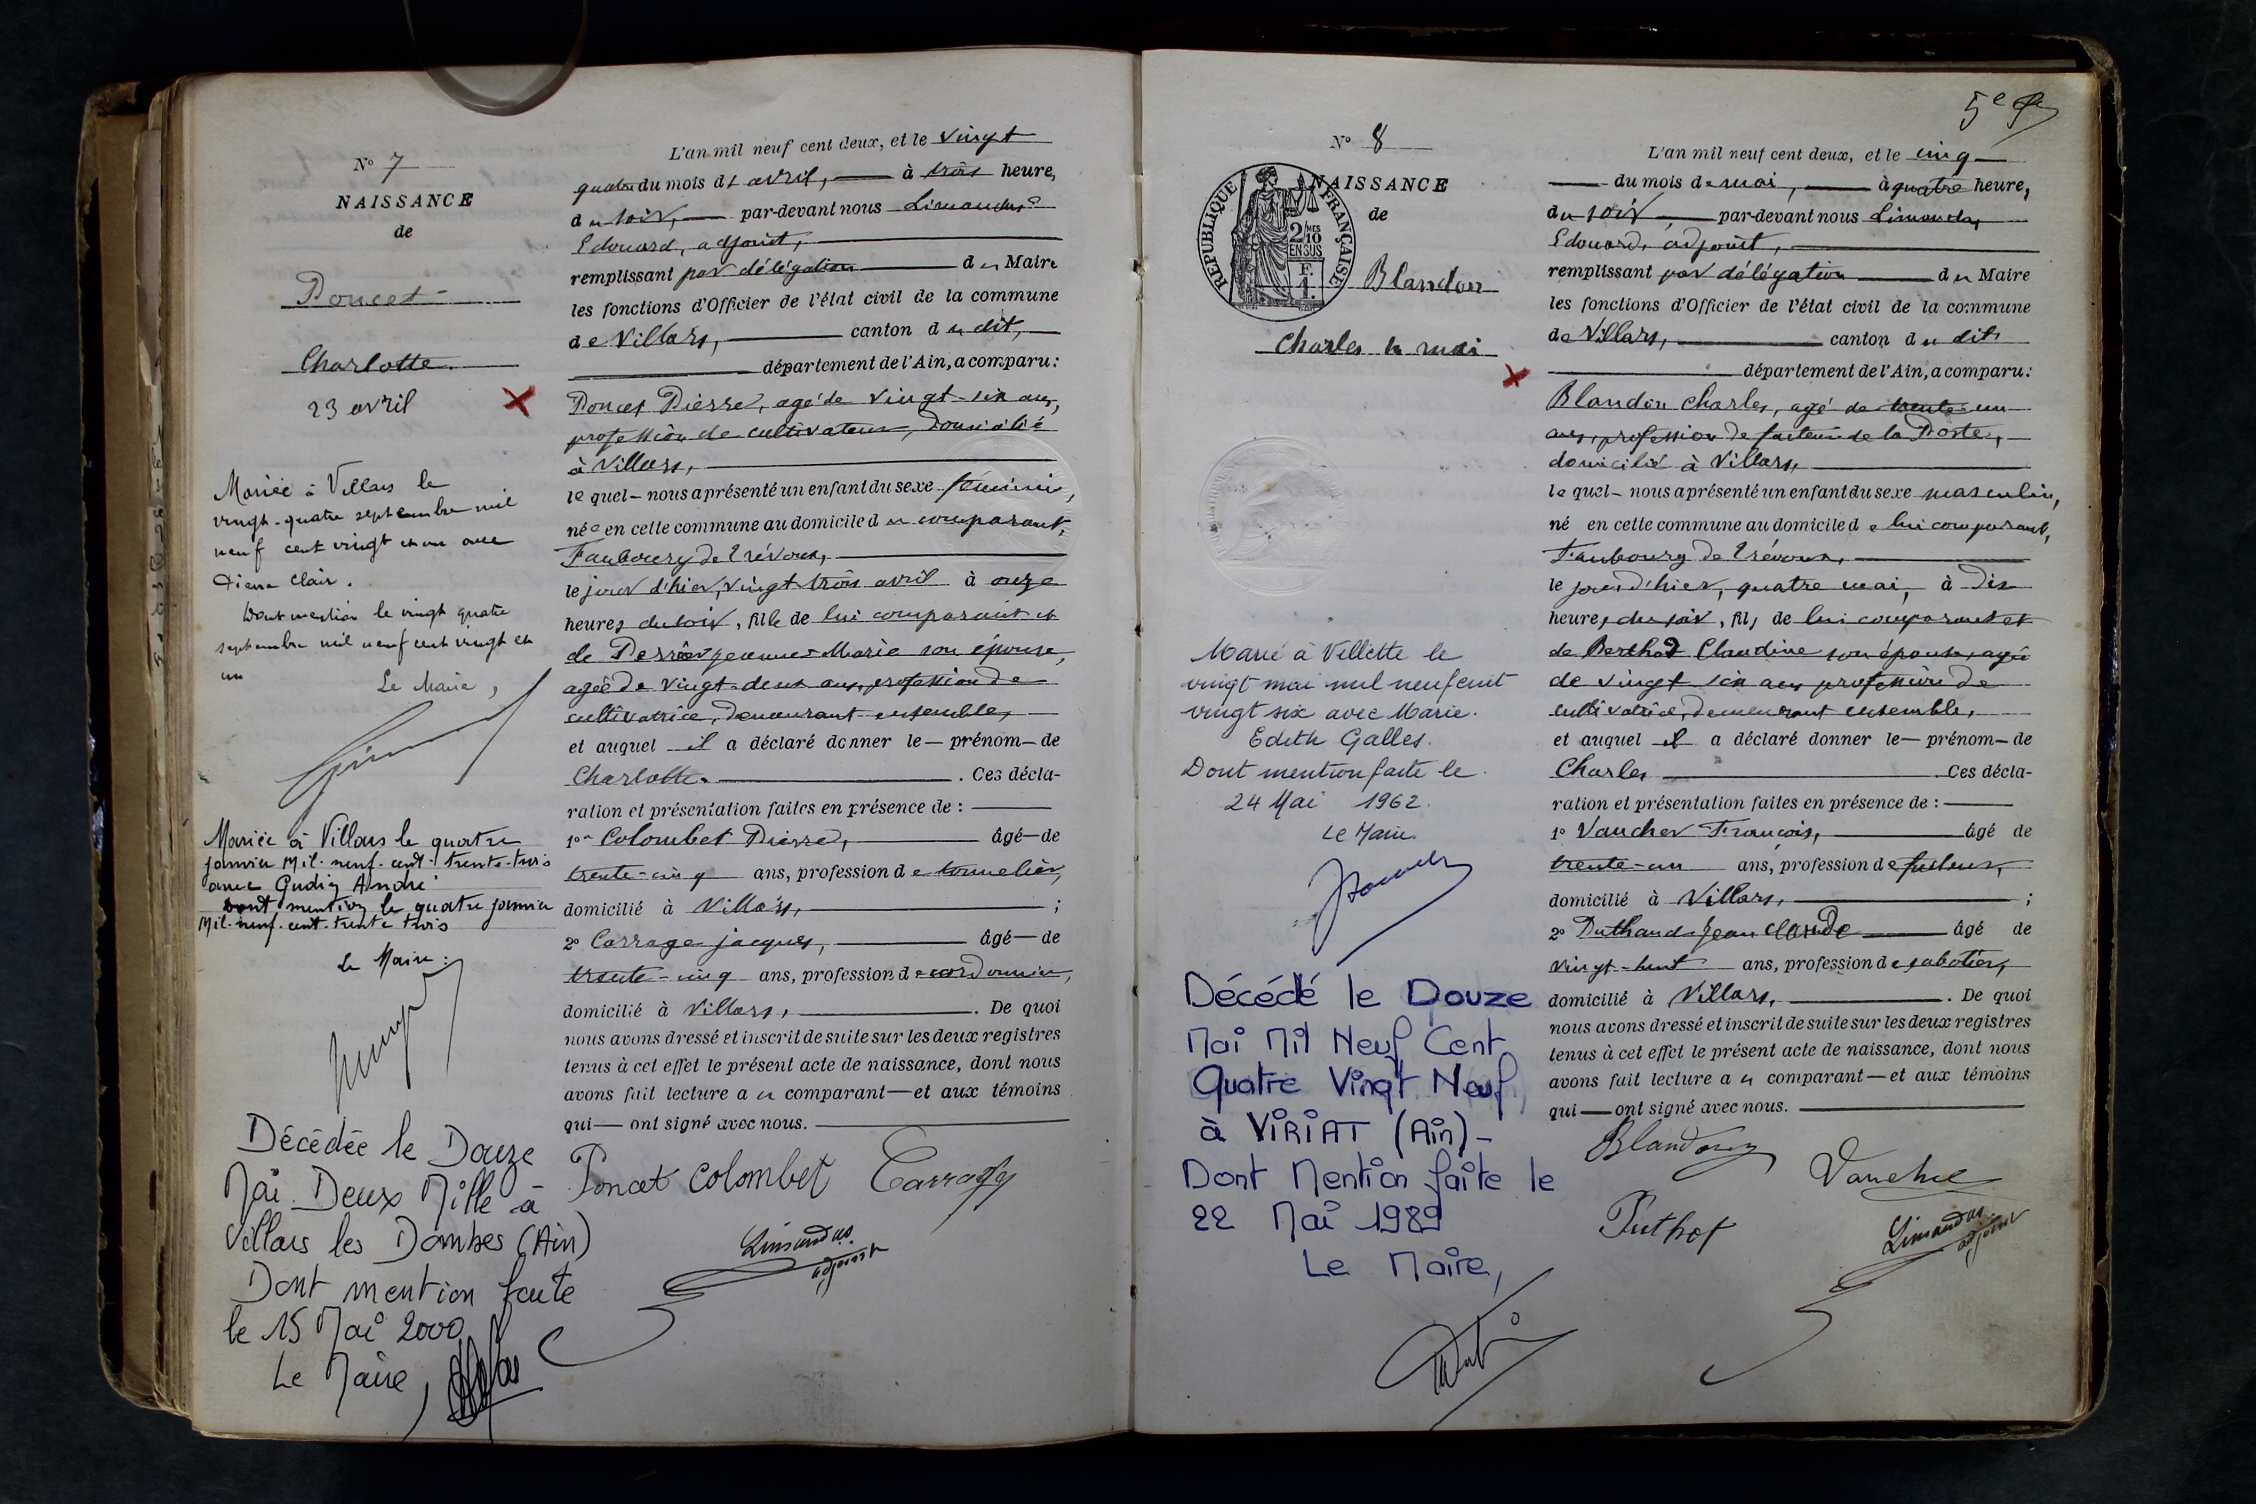 N° 7
NAISSANCE
de
Poncet
Charlotte.
23 avril
Mariée à Villars le
vingt-quatre septembre mil
neuf cent vingt et un avec
Clair.
Dont mention le vingt quatre
septembre mil neuf cent vingt et
un
Le Maire,
Mariée à Villars le quatre
janvier Mil. neuf. cent. trente-trois
avec Gudin André
Dont mention le quatre janvier
Mil. neuf. cent. trente trois
Le Maire:
Décédée le Douze
Mai Deux Mille à
Villars les Dombes (Ain)
Dont mention faite
le 15 Mai 2000
Le Maire,
L'an mil neuf cent deux, et le vingt
quatre du mois de avril, à trois heure,
du soir, par-devant nous Limandas
Edouard, adjoint,
remplissant par délégation du Maire
les fonctions d'Officier de l'état civil de la commune
de Villars, canton du dit,
département de l'Ain, a comparu:
Poncet Pierre, agé de vingt-six ans,
profession de cultivateur, domicilié
à Villars,
lequel nous a présenté un enfant du sexe féminin,
née en cette commune au domicile du comparant,
Faubourg de Trévoux,
le jour d'hier, vingt trois avril à onze
heures du soir, fille de lui comparant et
de Jeanne Marie son épouse,
agée de vingt-deux ans, profession de
cultivatrice, demeurant ensemble,
et auquel il a déclaré donner le prénom de
Charlotte. . Ces décla-
ration et présentation faites en présence de :
1° Colombet Pierre, âgé de
trente-cinq ans, profession de tonnelier,
domicilié à Villars, ;
2° Carrage jacques, âgé de
trente-cinq ans, profession de cordonnier,
domicilié à Villars, . De quoi
nous avons dressé et inscrit de suite sur les deux registres
tenus à cet effet le présent acte de naissance, dont nous
avons fait lecture au comparant et aux témoins
qui ont signé avec nous.
Poncet Colombet Carrage
Limandas
adjoint
5e
N° 8
NAISSANCE
de
RÉPUBLIQUE FRANÇAISE
2/10 MES
EN SUS
F.
1.
Blandon
Charles 4 mai
Marié à Villette le
vingt mai mil neuf cent
vingt six avec Marie.
Edith Galles.
Dont mention faite le.
24 Mai 1962.
Le Maire.
Décédé le Douze
Mai Mil Neuf Cent
Quatre Vingt Neuf
à VIRIAT (Ain)-
Dont Mention faite le
22 Mai 1989
Le Maire,
L'an mil neuf cent deux, et le cinq
du mois de mai, à quatre heure,
du soir par-devant nous Limandas
Edouard, adjoint,
remplissant par délégation du Maire
les fonctions d'Officier de l'état civil de la commune
de Villars, canton du dit,
département de l'Ain, a comparu:
Blandon Charles, agé de trente-un
ans, profession de facteur de la Poste,
domicilié à Villars,
lequel nous a présenté un enfant du sexe masculin,
né en cette commune au domicile de lui comparant,
Faubourg de Trévoux,
le jour d'hier, quatre mai, à dix
heures du soir, fils de lui comparant et
de Berthod Claudine son épouse, agée
de vingt six ans profession de
cultivatrice, demeurant ensemble,
et auquel il a déclaré donner le prénom de
Charles . Ces décla-
ration et présentation faites en présence de :
1° Vaucher François, âgé de
trente-un ans, profession de facteur,
domicilié à Villars, ;
2° Jean Claude âgé de
vingt-huit ans, profession de sabotier,
domicilié à Villars, . De quoi
nous avons dressé et inscrit de suite sur les deux registres
tenus à cet effet le présent acte de naissance, dont nous
avons fait lecture au comparant et aux témoins
qui ont signé avec nous.
Blandon
Vaucher
Limandas
adjoint